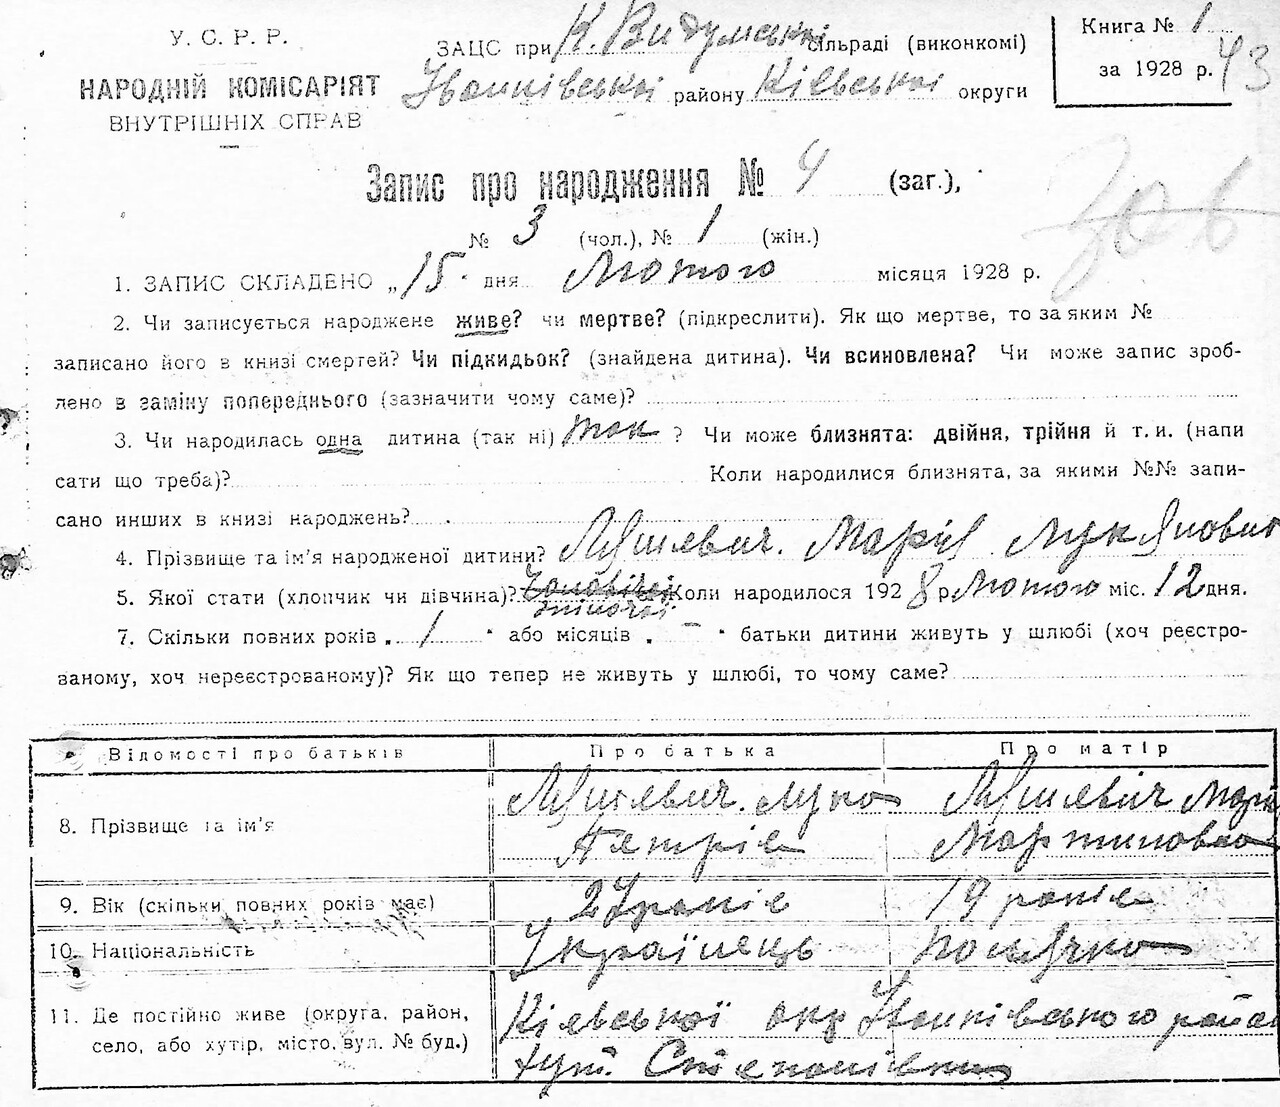 У. С. Р. Р.
НАРОДНІЙ КОМІСАРІЯТ
ВНУТРІШНІХ СПРАВ
ЗАЦС при К. Видумській сільраді (виконкомі)
Іванківської району Київської округи
Книга № 1
за 1928 р. 43
Запис про народження № 4 (заг.),
№ 3 (чол.), № 1 (жін.)
1. ЗАПИС СКЛАДЕНО „15" дня Лютого місяця 1928 р.
2. Чи записується народжене живе? чи мертве? (підкреслити). Як що мертве, то за яким №
записано його в книзі смертей? Чи підкидьок? (знайдена дитина). Чи всиновлена? Чи може запис зроб-
лено в заміну попереднього (зазначити чому саме)?
3. Чи народилась одна дитина (так ні) так ? Чи може близнята: двійня, трійня й т. и. (напи
сати що треба)? Коли народилися близнята, за якими №№ запи-
сано инших в книзі народжень?
4. Прізвище та ім'я народженої дитини? Марія
5. Якої стати (хлопчик чи дівчина)? жіночої Коли народилося 1928 р. Лютого міс. 12 дня.
7. Скільки повних років „ 1 " або місяців „ – " батьки дитини живуть у шлюбі (хоч реєстро-
ваному, хоч нереєстрованому)? Як що тепер не живуть у шлюбі, то чому саме?
Відомості про батьків Про батька Про матір
8. Прізвище та ім'я Лука Петрів Мартиновна
9. Вік (скільки повних років має) років 19 років
10. Національність Українець полячка
11. Де постійно живе (округа, район, Київської окр Іванківського район
село, або хутір, місто, вул. № буд.) хут. Степанівка